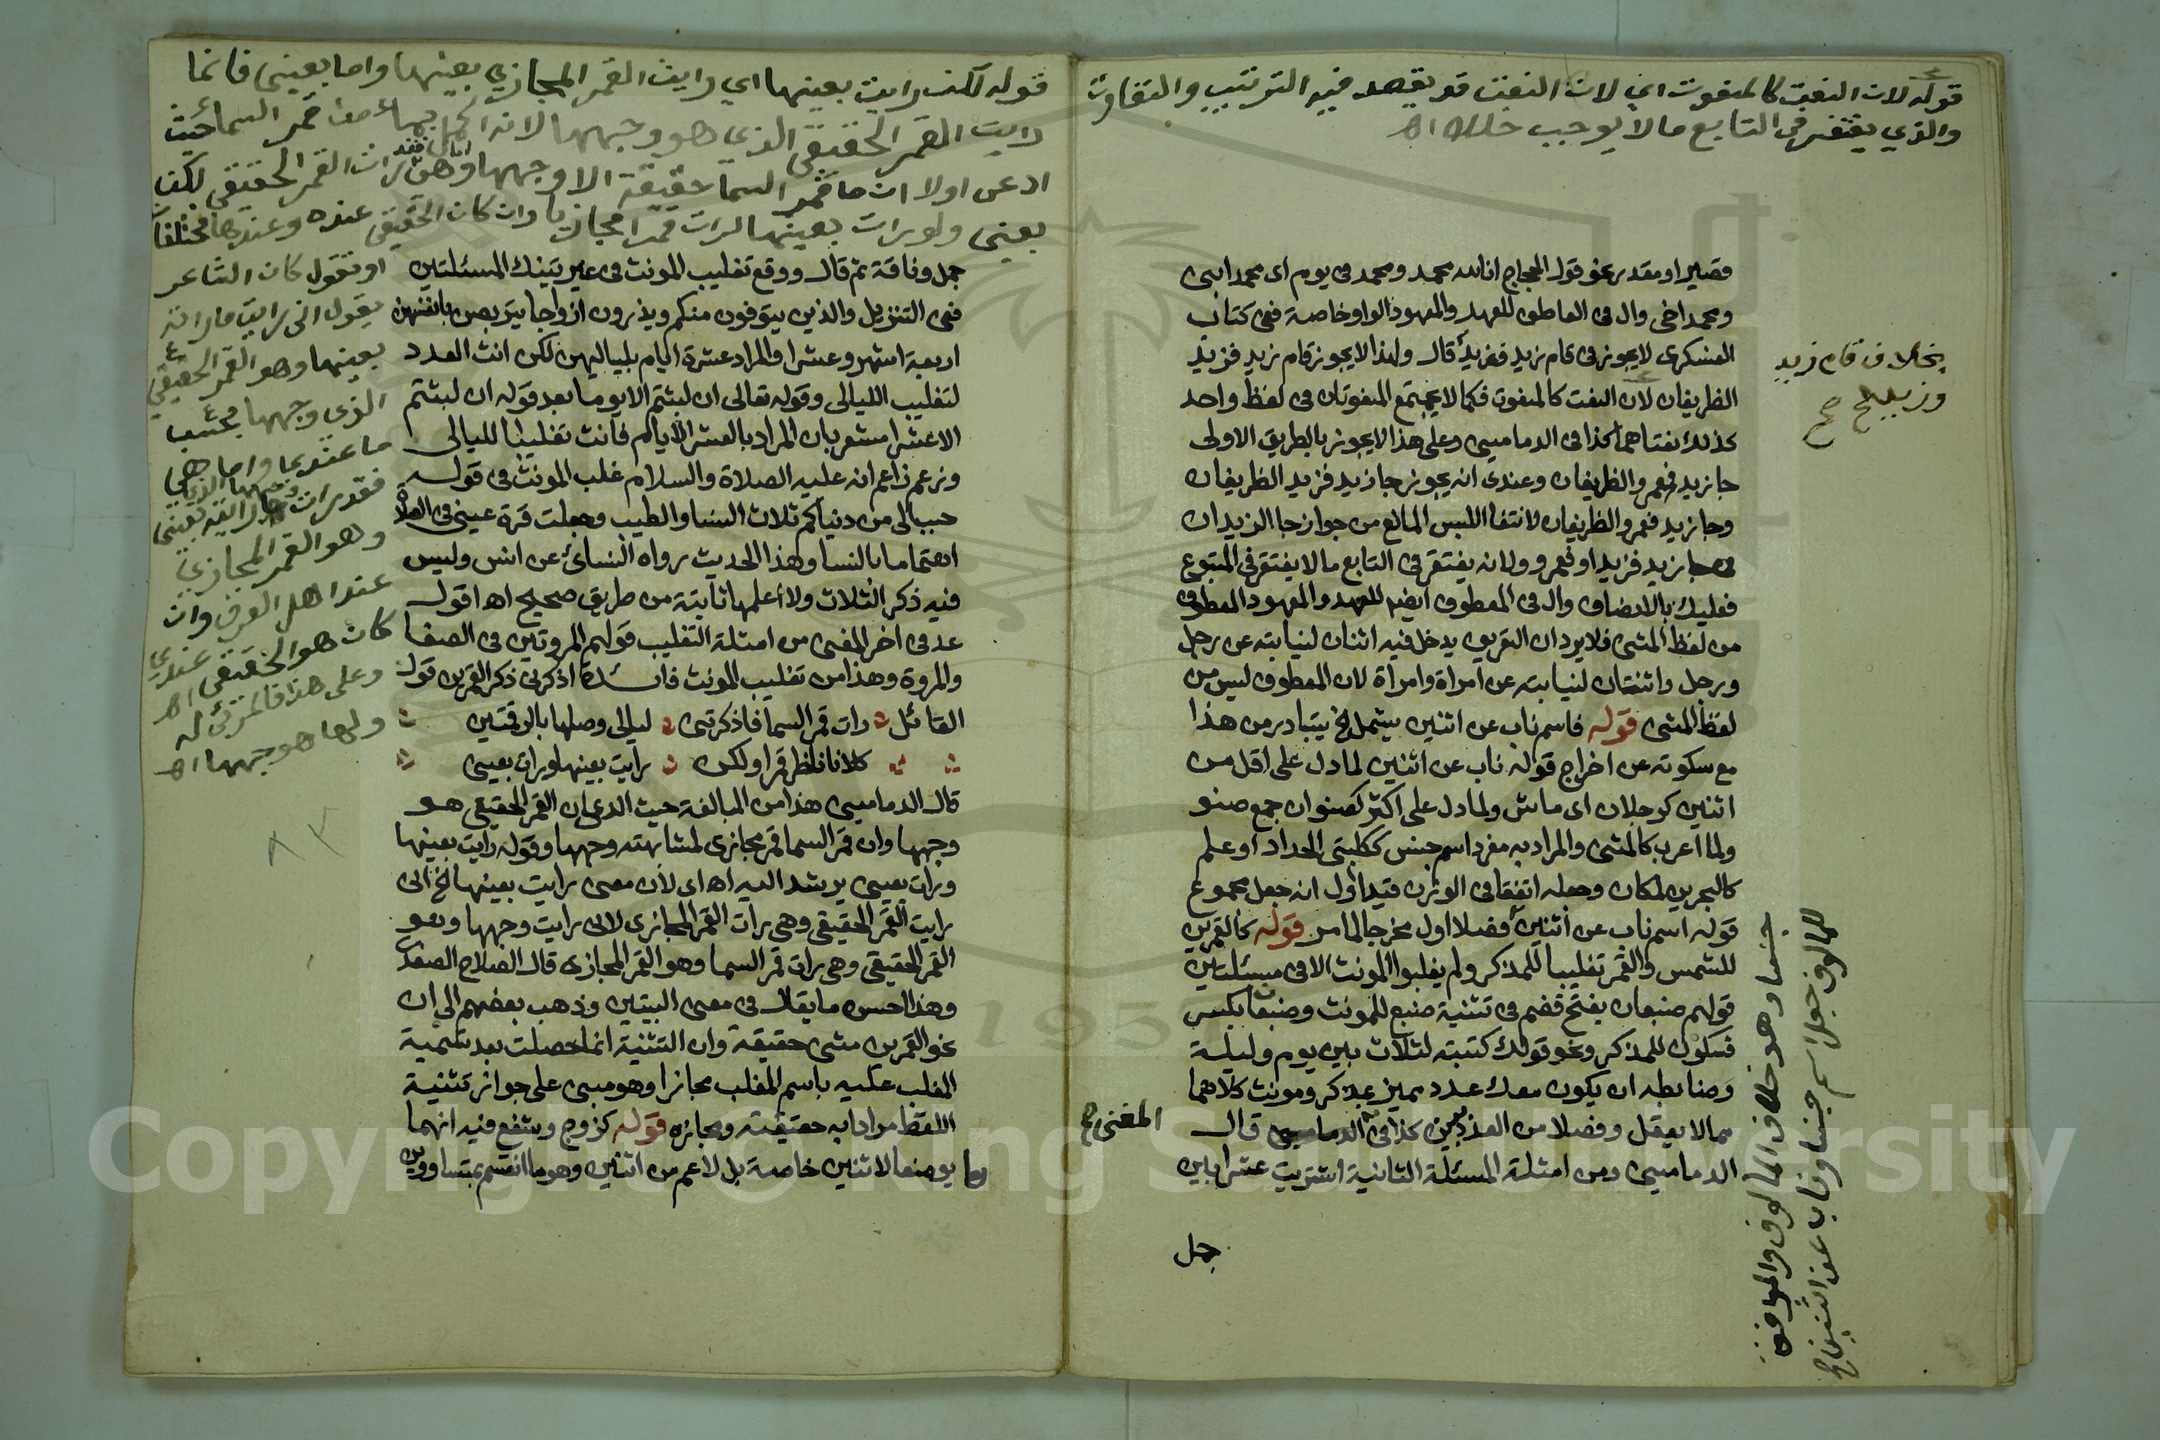 قوله لان النعت كالمنعوت اي لان النعت قد يقصد فيه الترتيب والتفاوت
والذي يغتفر في التابع مالا يوجب ذلك اه
فصلا او مقدر نحو قول الحجاج انا لله محمد ومحمد في يوم اى محمد ابنى
ومحمد اخى وال فى العاطف للعهد والمعهود الواو خاصة ففى كتاب
العسكرى لا يجوز فى قام زيد فزيد قال ولهذا لا يجوز قام زيد فزيد
الظريفان لان النعت كالمنعوت فكما لا يجتمع المنعوتان فى لفظ واحد
كذلك نعتاهما كذا فى الدمامينى وعلى هذا لا يجوز بالطريق الاولى
جا زيد فعمرو الظريفان وعندى انه يجوز جا زيد فزيد الظريفان
وجا زيد فعمرو الظريفان لانتفا اللبس المانع من جواز جا الزيدان
فى جا زيد فزيد او فعمرو ولانه يغتفر فى التابع مالا يغتفر فى المتبوع
فعليك بالانصاف وال فى المعطوف ايضا للعهد والمعهود المعطوف
من لفظ المثنى فلا يرد ان التعريف يدخل فيه اثنان لنيابته عن رجل
ورجل واثنتان لنيابته عن امراة وامراة لان المعطوف ليس من
لفظ المثنى قوله فاسم ناب عن اثنين يشمل الخ يتبادر من هذا
مع سكوته عن اخراج قوله ناب عن اثنين لما دل على اقل من
اثنين كرجلان اى ماش ولما دل على اكثر كصنوان جمع صنو
ولما اعرب كالمثنى والمراد به مفرد اسم جنس ككلبتى الحداد او علم
كالبحرين لمكان وجعله اتفقا فى الوزن قيدا اول انه جعل مجموع
قوله اسم ناب عن اثنين فصلا اول مخرجا لما مر قوله كالقمرين
للشمس والقمر تغليبا للمذكر ولم يغلبوا المونث الا فى مسئلتين
قولهم ضبعان بفتح فضم فى تثنية ضبع للمونث وضبعان بكسر
فسكون للمذكر ونحو قولك كتبته لثلاث بين يوم وليلة
وضابطه ان يكون معك عدد مميز بمذكر ومونث كلاهما
مما لا يعقل وفصلا من العدد ببين كذا فى المغنى صح قال
الدمامينى ومن امثلة المسئلة الثانية اشتريت عشرا بين
جمل
بخلاف قام زيد
وزيد صح
جنسا وهو خلاف المالوف والموافق
للمالوف جعل اسم جنسا وناب عن اثنين
قوله لكن رايت بعينها اي رايت القمر المجازي بعينها واما بعينى فانما
رايت القمر الحقيقي الذي هو وجهها لانه
ادعى اولا ان ما قمر السما حقيقة الا وجهها القمر الحقيقي لكن
بعينى ولو رات بعينها لرات قمرا مجازيا وان كان الحقيقي عنده وعندها مختلفا
او نقول كان الشاعر
يقول انى رايت ما راته
بعينها وهو القمر الحقيقي
الذى وجهها بحسب
ما عندي واما هي
فقد رات
وهو القمر المجازي
عند اهل العرف وان
كان هو الحقيقى عندي
وعلى هذا فالمرئى له
ولها هو وجهها اه
جمل وناقة ثم قال ووقع تغليب المونث فى غير تينك المسئلتين
ففى التنزيل والذين يتوفون منكم ويذرون ازواجا يتربصن بانفسهن
اربعة اشهر وعشرا والمراد عشرة ايام بلياليهن لكن انث العدد
لتغليب الليالى وقوله تعالى ان لبثتم الا يوما بعد قوله ان لبثتم
الا عشرا مشعر بان المراد بالعشر الايام فانث تغليبا لليالى
وزعم زاعم انه عليه الصلاة والسلام غلب المونث فى قوله
حبب الى من دنياكم ثلاث النسا والطيب وجعلت قرة عينى فى الصلاة
اهتماما بالنسا وهذا الحديث رواه النسائى عن انس وليس
فيه ذكر الثلاث ولا اعلمها ثابتة من طريق صحيح اه اقول
عد فى اخر المغنى من امثلة التغليب قولهم المروتين فى الصفا
والمروة وهذا من تغليب المونث فائدة اذكرنى ذكر القمرين قول
القائل رات قمر السما فاذكرتنى ليالى وصلها بالرقمتين
كلانا ناظر قمرا ولكن رايت بعينها ورات بعينى
قال الدمامينى هذا من المبالغة حيث ادعى ان القمر الحقيقى هو
وجهها وان قمر السما قمر مجازى لمشابهته وجهها وقوله رايت بعينها
ورات بعينى يرشد اليه اه اى لان معنى رايت بعينها الخ انى
رايت القمر الحقيقى وهى رات القمر المجازى لانى رايت وجهها وهو
القمر الحقيقى وهى رات قمر السما وهو القمر المجازى قال الصلاح الصفدى
وهذا احسن ما يقال فى معنى البيتين وذهب بعضهم الى ان
نحو القمرين مثنى حقيقة وان التثنية انما حصلت بعد تسمية
المغلب عليه باسم المغلب مجازا وهو مبنى على جواز تثنية
اللفظ مرادا به حقيقته ومجازه قوله كزوج وشفع فيه انهما
لم يوضعا لاثنين خاصة بل لاعم من اثنين وهو ما انقسم بمتساويين
Copyright © King Saud University
1957